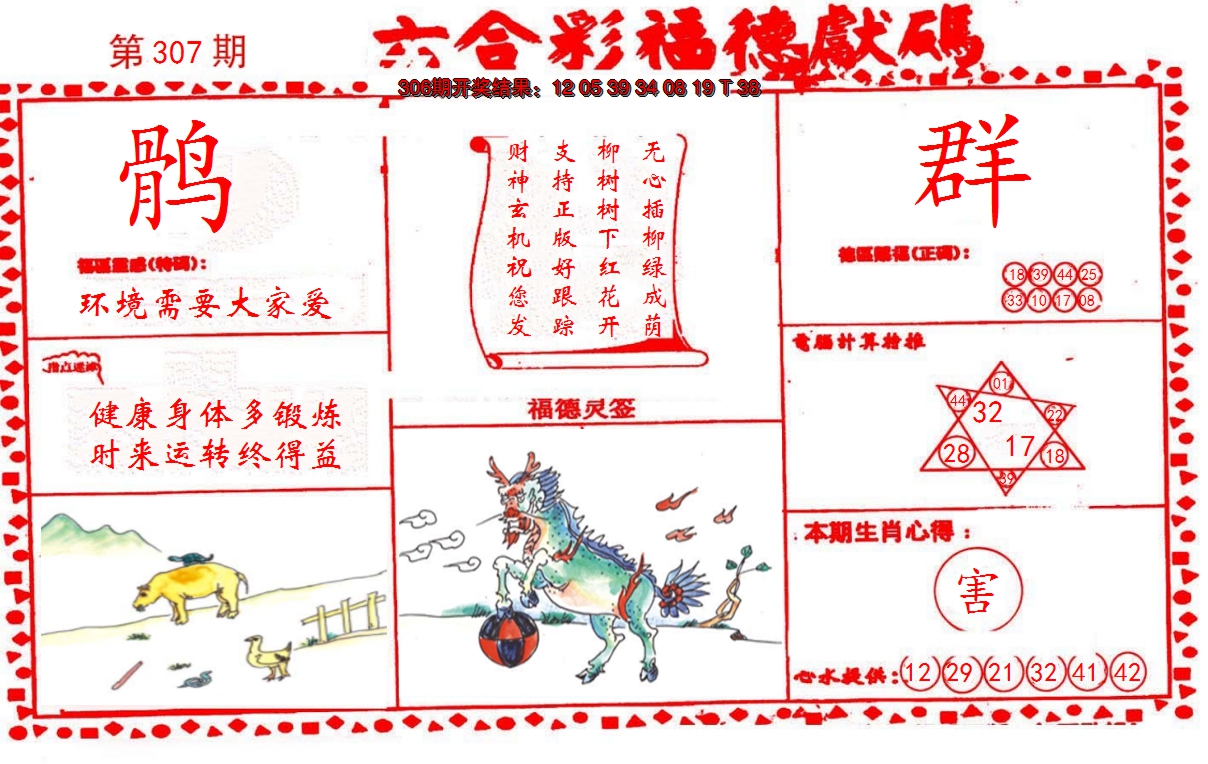 六合彩福德獻碼
第307期
306期开奖结果：12 05 39 34 08 19 T 38
鹘
福區靈感(特碼)：
环境需要大家爱
指点迷津
健康身体多锻炼
时来运转终得益
无心插柳绿成荫
柳树树下红花开
支持正版好跟踪
财神玄机祝您发
福德灵签
群
德區賜福(正碼)：
18 39 44 25
33 10 17 08
電腦計算抢推
01
44 32 22
28 17 18
39
本期生肖心得：
害
心水提供：12 29 21 32 41 42